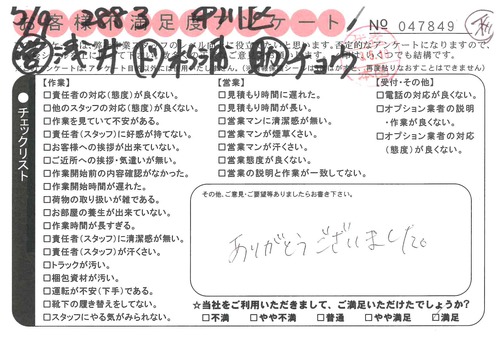 お客様満足度アンケート
№ 047849
チェックリスト
【作業】
□責任者の対応(態度)が良くない。
□他のスタッフの対応(態度)が良くない。
□作業を見ていて不安がある。
□責任者(スタッフ)に好感が持てない。
□お客様への挨拶が出来ていない。
□ご近所への挨拶・気遣いが無い。
□作業開始前の内容確認がなかった。
□作業開始時間が遅れた。
□荷物の取り扱いが雑である。
□お部屋の養生が出来ていない。
□作業時間が長すぎる。
□責任者(スタッフ)に清潔感が無い。
□責任者(スタッフ)が汗くさい。
□トラックが汚い。
□梱包資材が汚い。
□運転が不安(下手)である。
□靴下の履き替えをしてない。
□スタッフにやる気がみられない。
【営業】
□見積もり時間に遅れた。
□見積もり時間が長い。
□営業マンに清潔感が無い。
□営業マンが煙草くさい。
□営業マンが汗くさい。
□営業態度が良くない。
□営業の説明と作業が一致してない。
【受付・その他】
□電話の対応が良くない。
□オプション業者の説明
・作業が良くない。
□オプション業者の対応
(態度)が良くない。
その他、ご意見・ご要望等ありましたらお書き下さい。
ありがとうございました。
☆当社をご利用いただきまして、ご満足いただけたでしょうか?
□不満 □やや不満 □普通 □やや満足 □満足